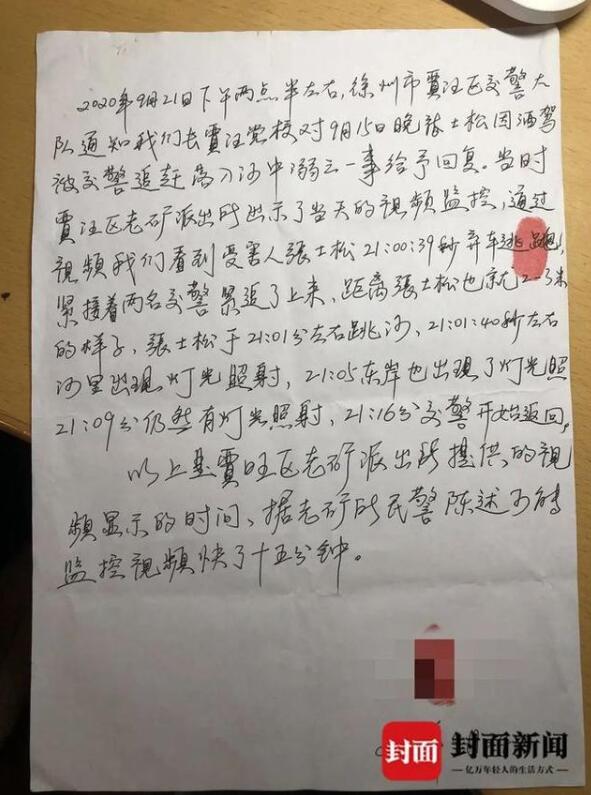 2020年9月21日下午两点半左右,徐州市贾汪区交警大
队通知我们去贾汪党校对9月15日晚张士松因酒驾
被交警追赶落入河中溺亡一事给予回复。当时
贾汪区老矿派出所出示了当天的视频监控,通过
视频我们看到受害人张士松21:00:39秒弃车逃跑,
紧接着两名交警紧追了上来,距离张士松也就2-3米
的样子,张士松于21:01分左右跳河,21:01:40秒左右
河里出现灯光照射,21:05东岸也出现了灯光照
21:09分仍然有灯光照射,21:16分交警开始返回,
以上是贾旺区老矿派出所提供的视
频显示的时间、据老矿所民警陈述
监控视频快了十五分钟。
封面
封面新闻
亿万年轻人的生活方式